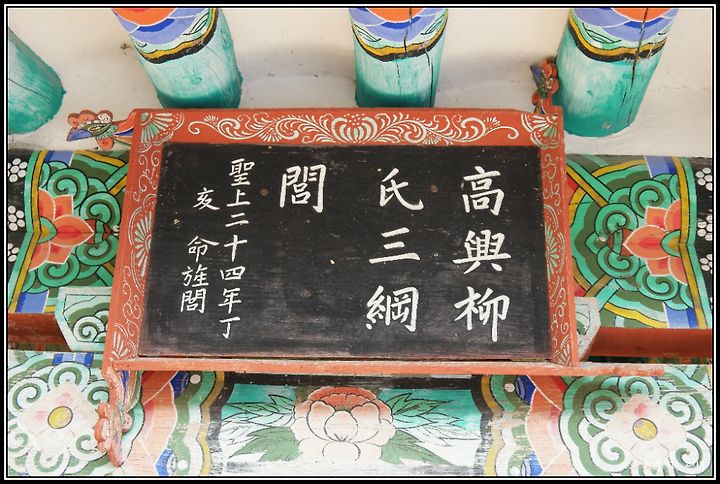 高興柳
氏三綱
閭
聖上二十四年丁
亥 命旌閭